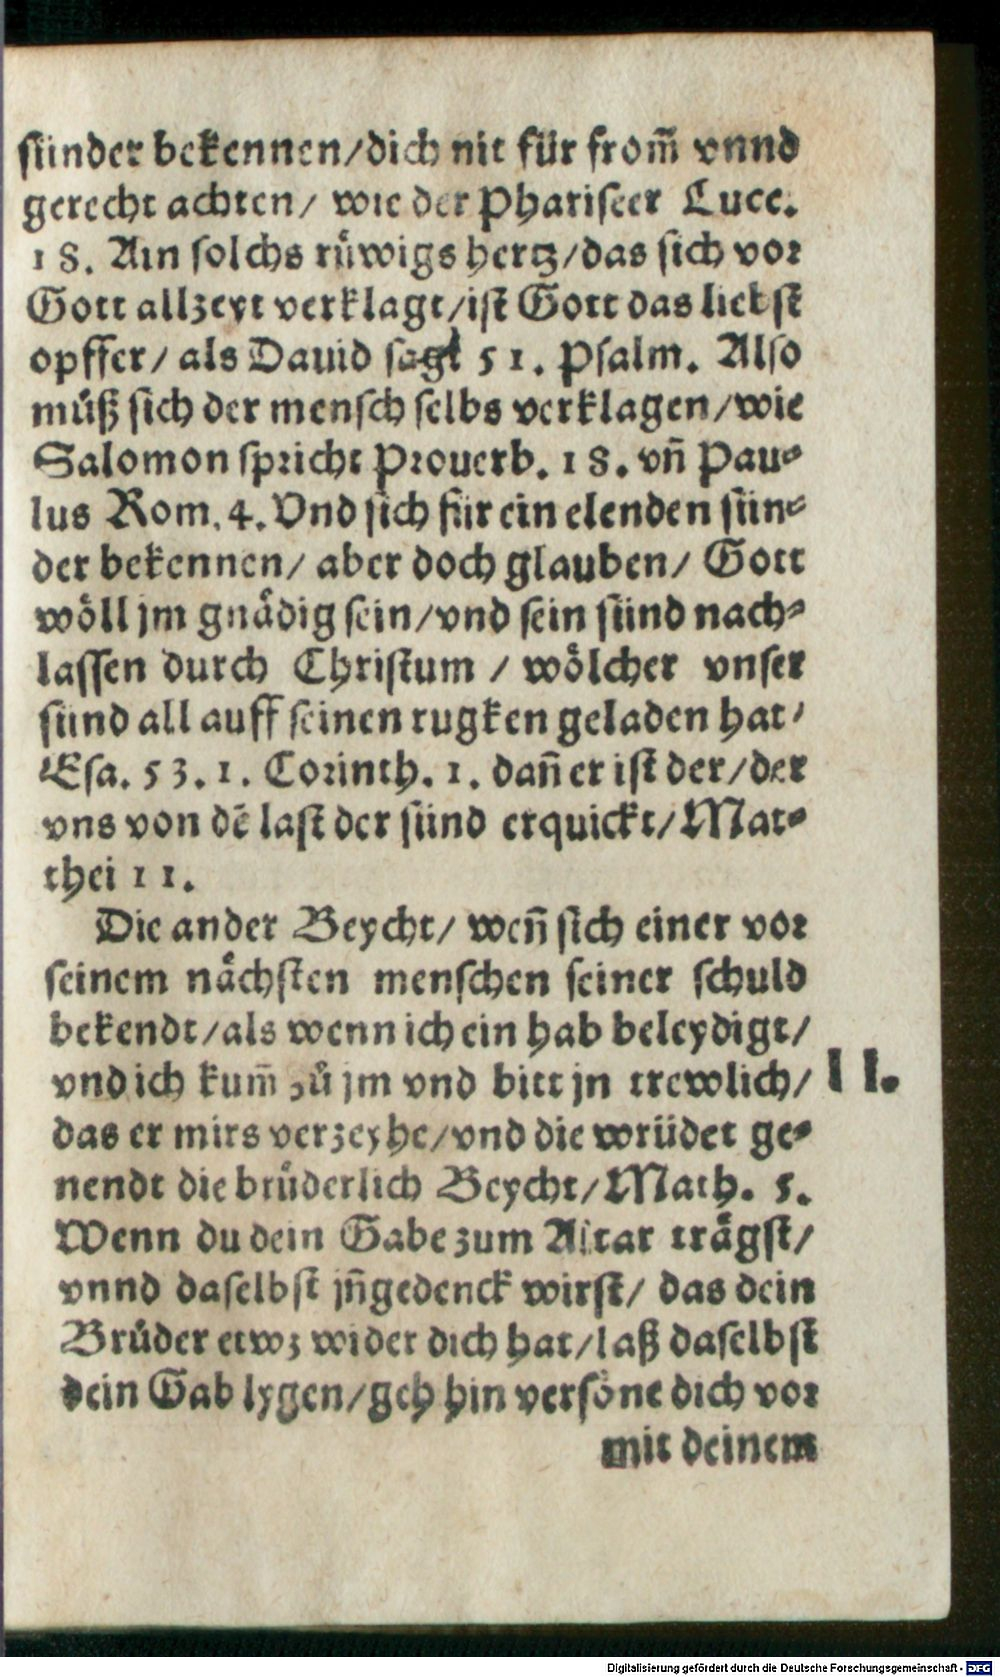 sünder bekennen/dich nit für from̃ vnnd
gerecht achten/ wie der Phariseer Luce.
18. Ain solchs rüwigs hertz/das sich vor
Gott allzeyt verklagt/ist Gott das liebst
opffer/ als Dauid sagt 51. Psalm. Also
müß sich der mensch selbs verklagen/wie
Salomon spricht Prouerb. 18. vn̄ Pau⸗
lus Rom. 4. Vnd sich für ein elenden sün⸗
der bekennen/ aber doch glauben/ Gott
wöll jm gnädig sein/vnd sein sünd nach⸗
lassen durch Christum / wölcher vnser
sünd all auff seinen rugken geladen hat/
Esa. 53. 1. Corinth. 1. dan̄ er ist der/der
vns von dē last der sünd erquickt/Mat⸗
thei 11.
Die ander Beycht/ wen̄ sich einer vor
seinem nächsten menschen seiner schuld
bekendt/als wenn ich ein hab beleydigt/
vnd ich kum̄ zů jm vnd bitt jn trewlich/ II.
das er mirs verzeyhe/vnd die wrüdet ge⸗
nendt die brüderlich Beycht/Math. 5.
Wenn du dein Gabe zum Altar trägst/
vnnd daselbst jn̄gedenck wirst/ das dein
Brůder etwz wider dich hat/laß daselbst
dein Gab lygen/geh hin versöne dich vor
mit deinem
Digitalisierung gefördert durch die Deutsche Forschungsgemeinschaft - DFG